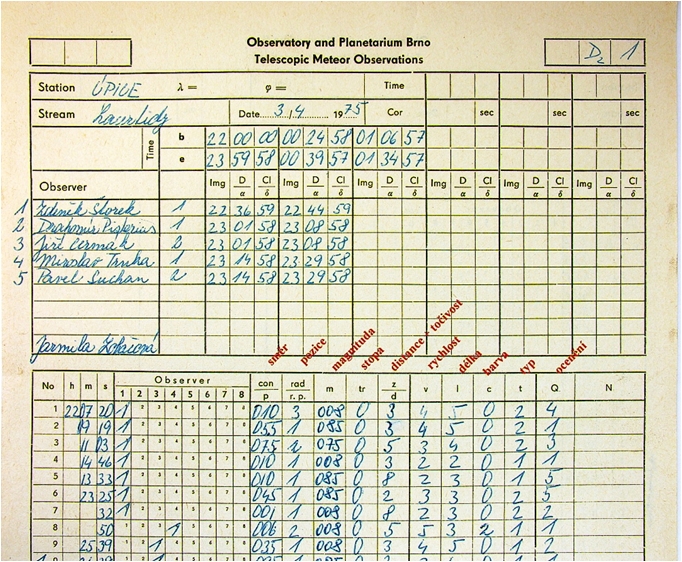 Observatory and Planetarium Brno
Telescopic Meteor Observations
D2 1
Station ÚPICE λ = φ = Time
Stream Lacertidy Date 3/4 1975 Cor sec sec sec
Time b 22 00 00 00 24 58 01 06 57
e 23 59 58 00 39 57 01 34 57
Observer Img D/α Cl/δ Img D/α Cl/δ Img D/α Cl/δ Img D/α Cl/δ Img D/α Cl/δ Img D/α Cl/δ
1 Zdeněk Štorek 1 22 36 59 22 44 59
2 Drahomír 1 23 01 58 23 08 58
3 Jiří Čermák 2 23 01 58 23 08 58
4 Miroslav Trnka 1 23 14 58 23 29 58
5 Pavel Suchan 2 23 14 58 23 29 58
Jarmila
směr pozice magnituda stopa distance + točivost rychlost délka barva typ ocenění
No h m s Observer 1 2 3 4 5 6 7 8 con/p rad/r. p. m tr z/d v l c t Q N
1 22 07 20 1 2 3 4 5 6 7 8 010 3 008 0 3 4 5 0 2 4
2 19 1 2 3 4 5 6 7 8 055 1 085 0 3 4 5 0 2 1
3 11 03 1 2 3 4 5 6 7 8 075 2 075 0 5 3 4 0 2 3
4 14 46 1 2 3 4 5 6 7 8 010 1 008 0 3 2 2 0 1 1
5 13 33 1 2 3 4 5 6 7 8 010 1 085 0 8 2 3 0 1 5
6 23 25 1 2 3 4 5 6 7 8 045 1 085 0 2 3 3 0 2 5
7 32 1 2 3 4 5 6 7 8 001 1 008 0 8 2 3 0 2 2
8 50 1 2 3 4 5 6 7 8 006 2 008 0 5 5 3 2 1 1
9 25 39 1 2 3 4 5 6 7 8 035 1 008 0 3 4 5 0 1 2